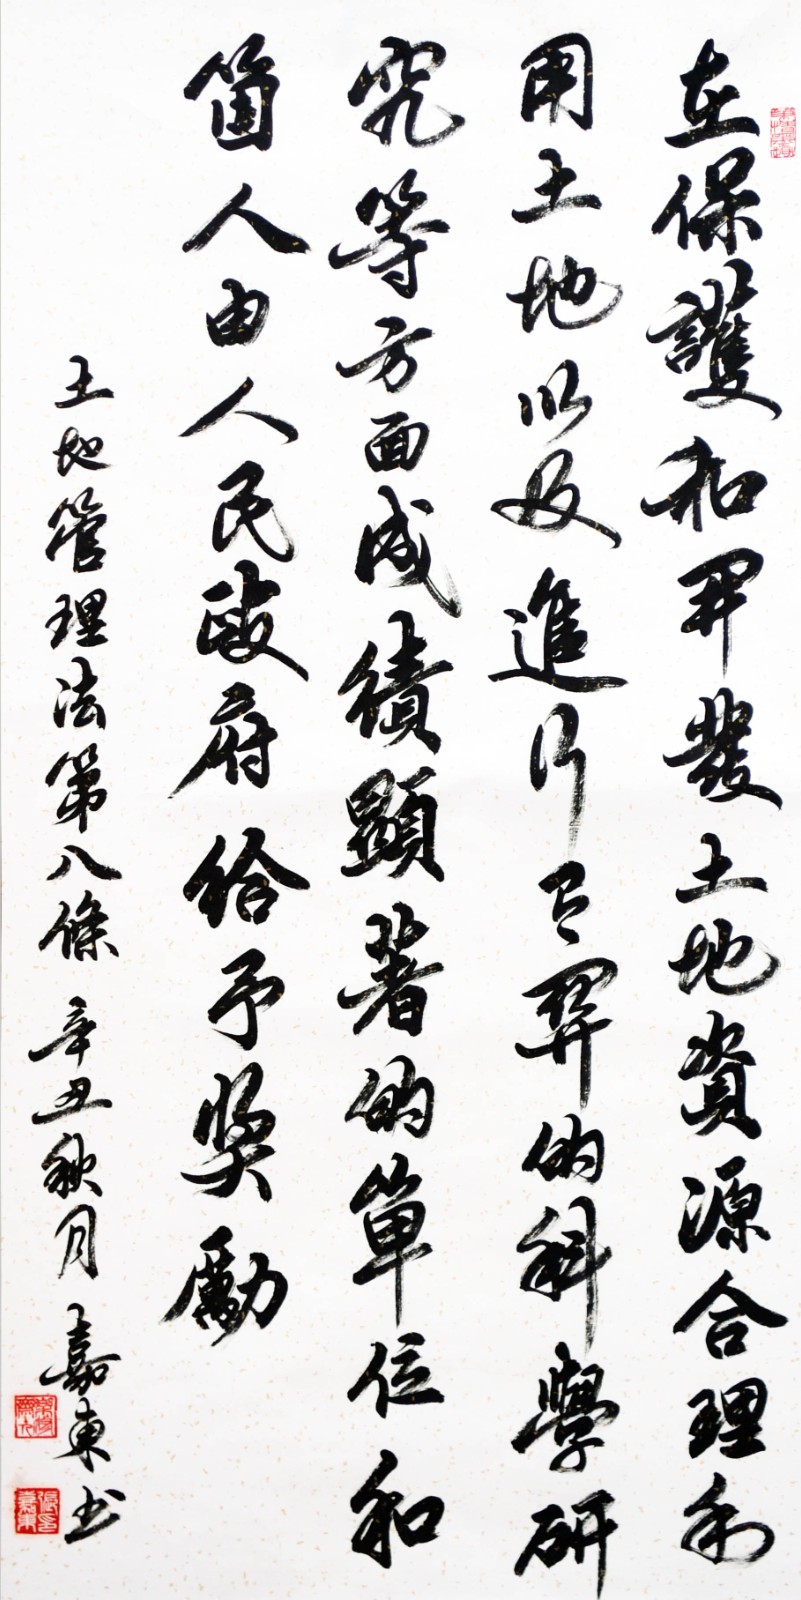 在保護和開發土地資源合理利
用土地以及進行有關的科學研
究等方面成績顯著的單位和
箇人由人民政府給予奬勵
土地管理法第八條 辛丑秋月 嘉東書